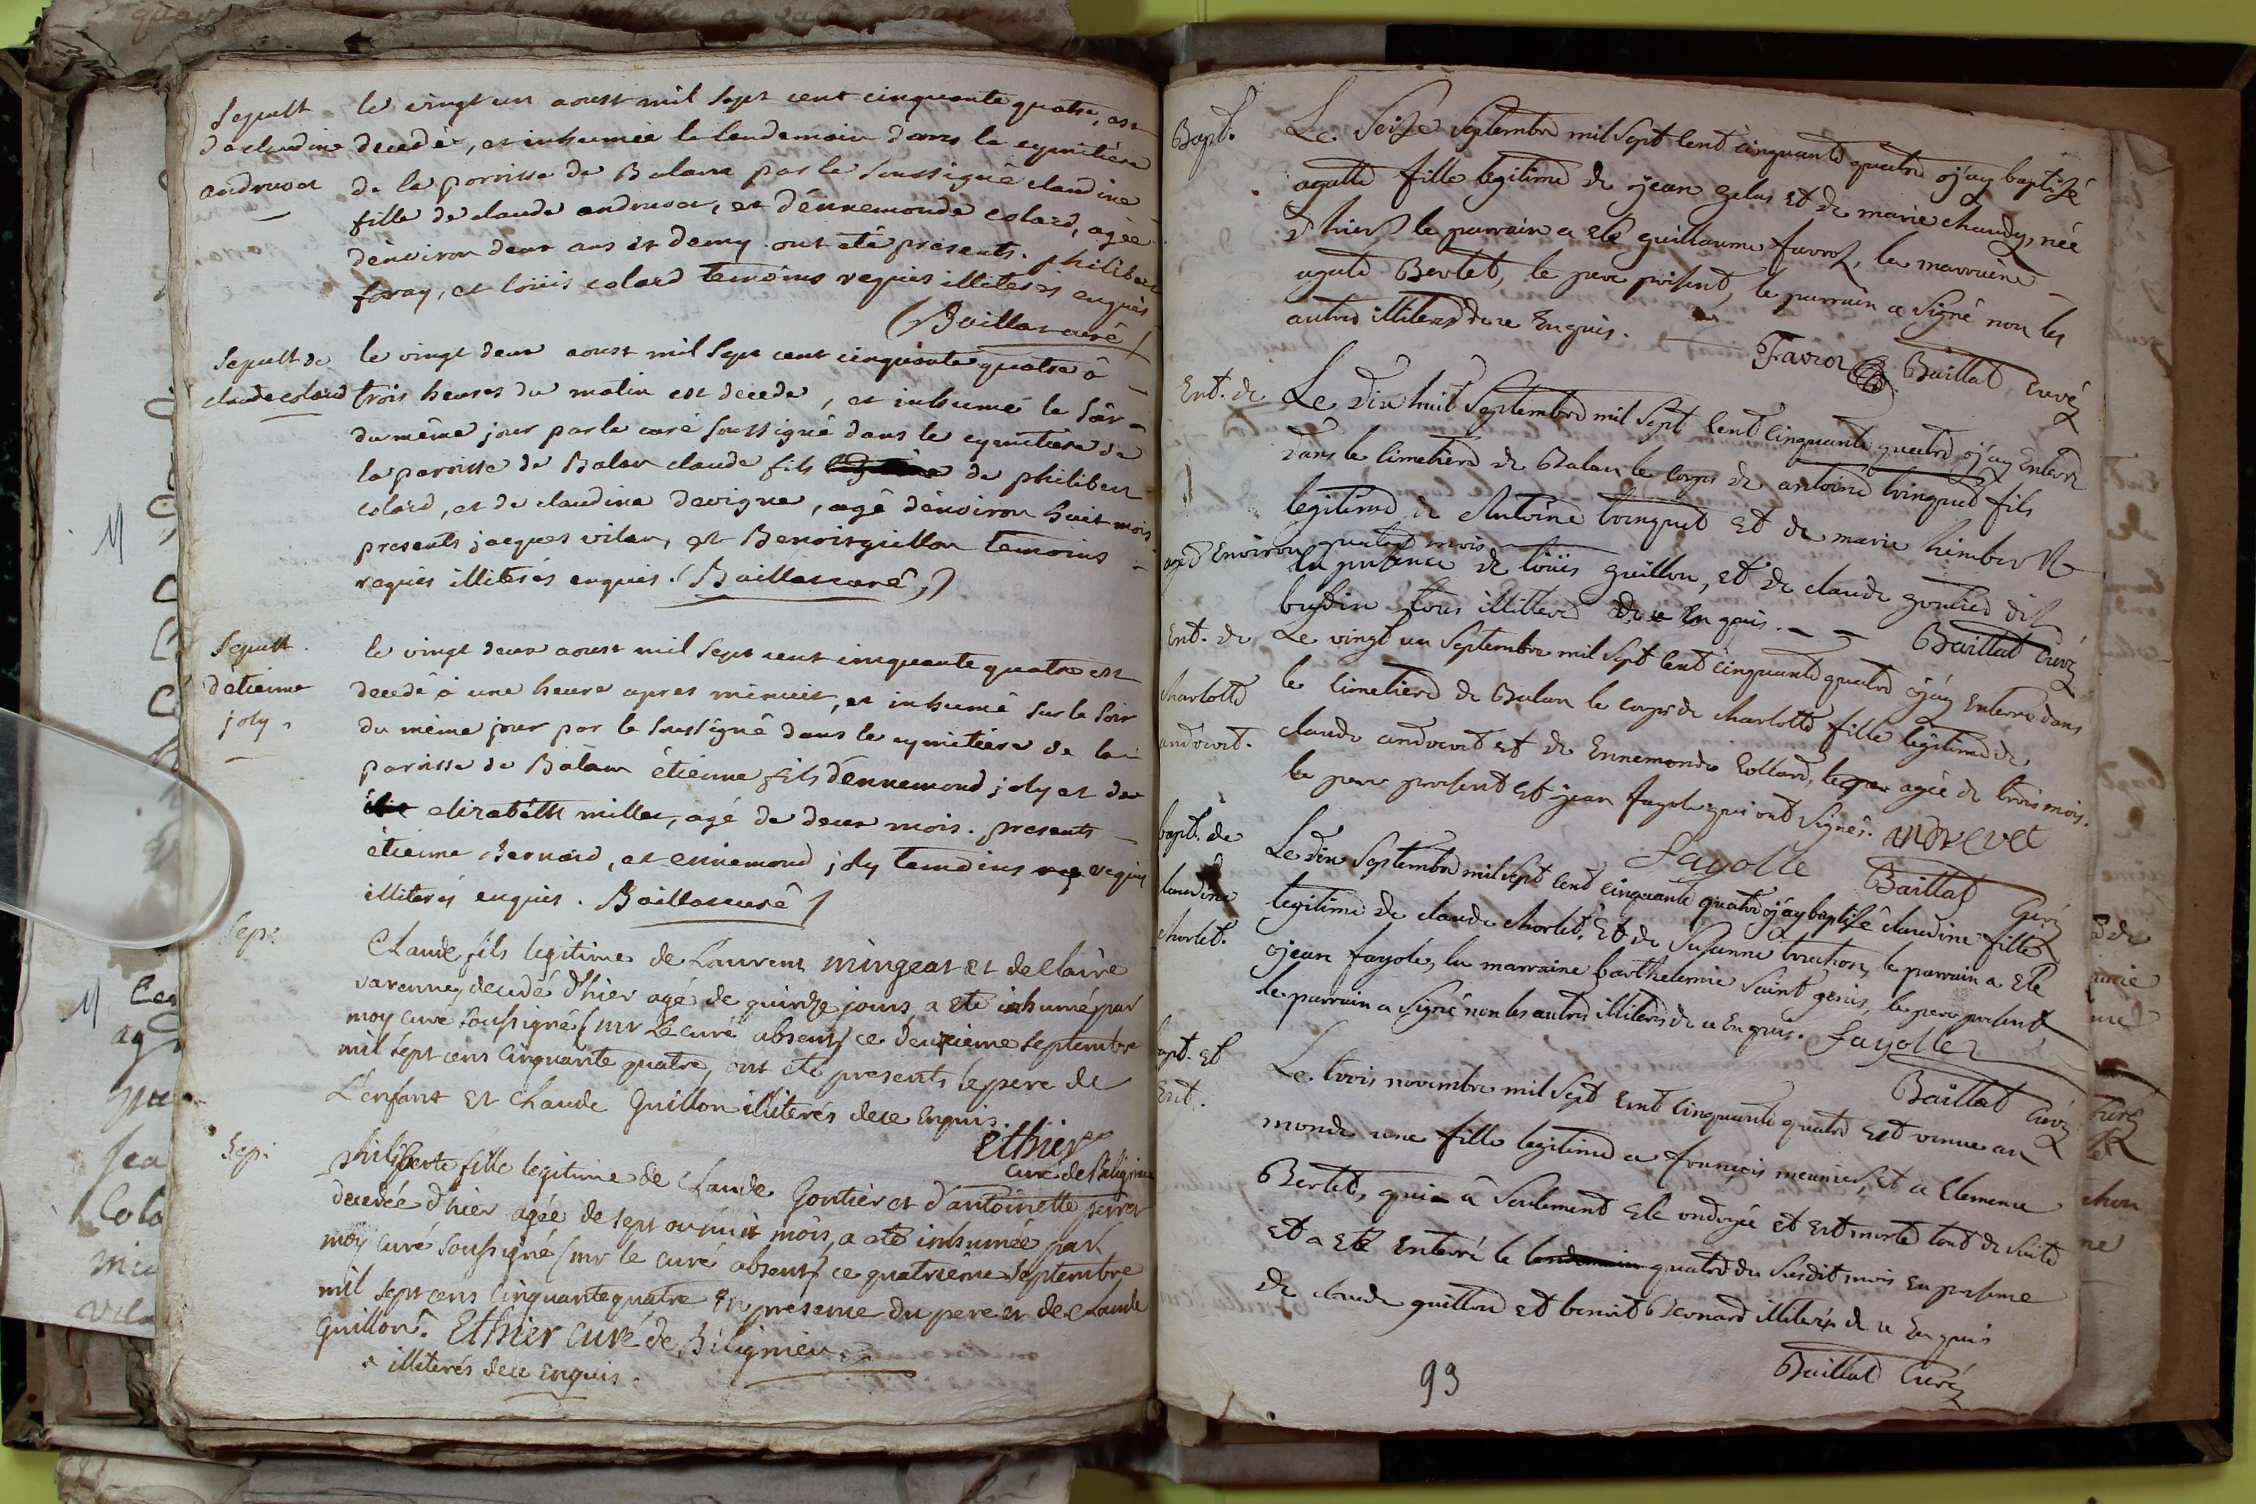 Sepult le vingt un aoust mil sept cent cinquante quatre, est
d'claudine decedé, et inhumée le lendemain dans le cymitiére
andruvet de la paroisse de Balan par le soussigné claudine
fille de claude andruvet, et d'énnemonde colard, agée
d'énviron deux ans et demy. ont été présents. philibert
foray, et loüis colard temoins requis illiterés enquis
Baillat curé
Sepult de le vingt deux aoust mil sept cent cinquante quatre á
claude colard trois heures du matin est decede, et inhumé le soir
du même jour par le curé soussigné dans le cymitiére de
la paroisse de Balan claude fils de philibert
colard, et de claudine devigne, agé d'énviron huit mois.
presents jacques vilan, et Benoit guillon temoins
requis illiterés enquis. (Baillat curé,)
Sepult. le vingt deux aoust mil sept cent cinquante quatre est
d'etienne decedé á une heure apres minuit, et inhumé sur le soir
joly, du même jour par le soussigné dans le cymitiére de la
paroisse de Balan étienne fils d'énnemond joly et de
elizabéth millet, agé de deux mois. presents
étienne Bernard, et ennemond joly temoins requis
illiterés enquis. Baillat curé
Sep: Claude fils legitime de Laurent mingeat et de Claire
varenne, decedé d'hier agé de quinze jours a eté inhumé par
moy curé soussigné (mr Le curé absent) ce deuxieme septembre
mil sept cens cinquante quatre, ont eté presents le pere de
L'enfant et Claude Guillon illiterés de ce enquis.
Ethier
curé de Béligneu
Sep: philiberte fille legitime de Claude Gontier et d'antoinette perret
decedée d'hier agée de sept ou huit mois, a eté inhumée par
moy curé soussigné (mr le curé absent) ce quatriéme septembre
mil sept cens cinquante quatre en presence du pere et de Claude
Guillon. Ethier curé de Béligneu
illiterés de ce enquis.
Bapt. Le Seize Septembre mil sept cent cinquante quatre j'ay baptisé
agatte fille legitime de jean gelas et de marie chaudy, née
d'hier le parrain a eté guillaume favrot, la marraine
agate Bertet, le pere present, le parrain a signé non les
autres illiterés de ce Enquis.
Favrot Baillat Curé
Ent. de Le dix huit Septembre mil sept Cent Cinquante quatre j'ay Enterré
dans le Cimetiere de Balan le Corps de antoine tringuet fils
legitime de Antoine tringuet et de marie himbert
agé Environ quatre mois
En presence de loüis guillon, et de claude gontier dit
bujdin tous illitterés de ce Enquis. Baillat Curé
Ent. de Le vingt un Septembre mil sept Cent Cinquante quatre j'ay Enterré dans
charlotte le Cimetiere de Balan le corps de charlotte fille legitime de
andrevet. claude andrevet et de Ennemonde Collard, agée de trois mois.
le pere present et jean fayole qui ont signés. ANDREVET
Fayolle Baillat Curé
bapt. de Le dix Septembre mil sept Cent Cinquante quatre j'ay baptisé claudine fille
claudine legitime de claude chorlet. Et de Susanne truchon, le parrain a eté
chorlet. jean fayole, la marraine barthelemie saint genis, le pere present,
le parrain a signé non les autres illiterés de ce Enquis. Fayolle
Baillat Curé
bapt. Et Le trois novembre mil Sept Cent Cinquante quatre Est venue au
Ent. monde une fille legitime a françois meunier, et a Clemence
Bertet, qui a Seulement eté ondoyée et est morte tout de Suite
et a eté enterré le quatre du Susdit mois en presence
de claude guillon et benoit Bernard illiterés de ce Enquis
Baillat Curé
93